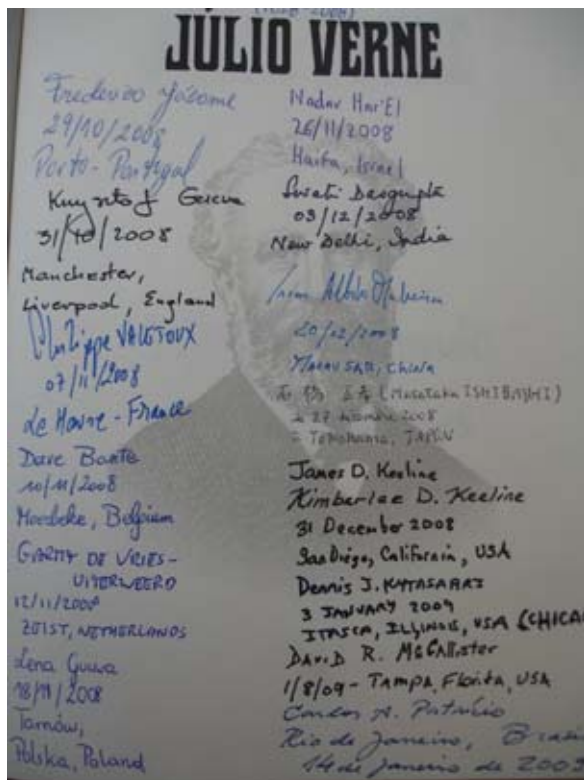 JÚLIO VERNE
Frederico Jácome
29/10/2008
Porto - Portugal
31/10/2008
Manchester,
Liverpool, England
Philippe VALETOUX
07/11/2008
Le Havre - France
Dave Bonte
10/11/2008
Moerbeke, Belgium
GARMT DE VRIES-
UITERWEERD
12/11/2008
ZEIST, NETHERLANDS
Lena Guwa
18/11/2008
Tarnów,
Polska, Poland
Nadav Har'El
26/11/2008
Haifa, Israel
Swati Dasgupta
03/12/2008
New Delhi, India
20/12/2008
MACAU SAR, China
石橋 正孝 (Masataka ISHIBASHI)
27 2008
Yokohama, JAPON
James D. Keeline
Kimberlee D. Keeline
31 December 2008
San Diego, California, USA
Dennis J. KYTASAARI
3 JANUARY 2009
ITASCA, ILLINOIS, USA (CHICA
DAVID R. McCallister
1/8/09 - TAMPA, Florida, USA
Carlos A. Patrício
Rio de Janeiro, Brasi
14 de janeiro de 2009